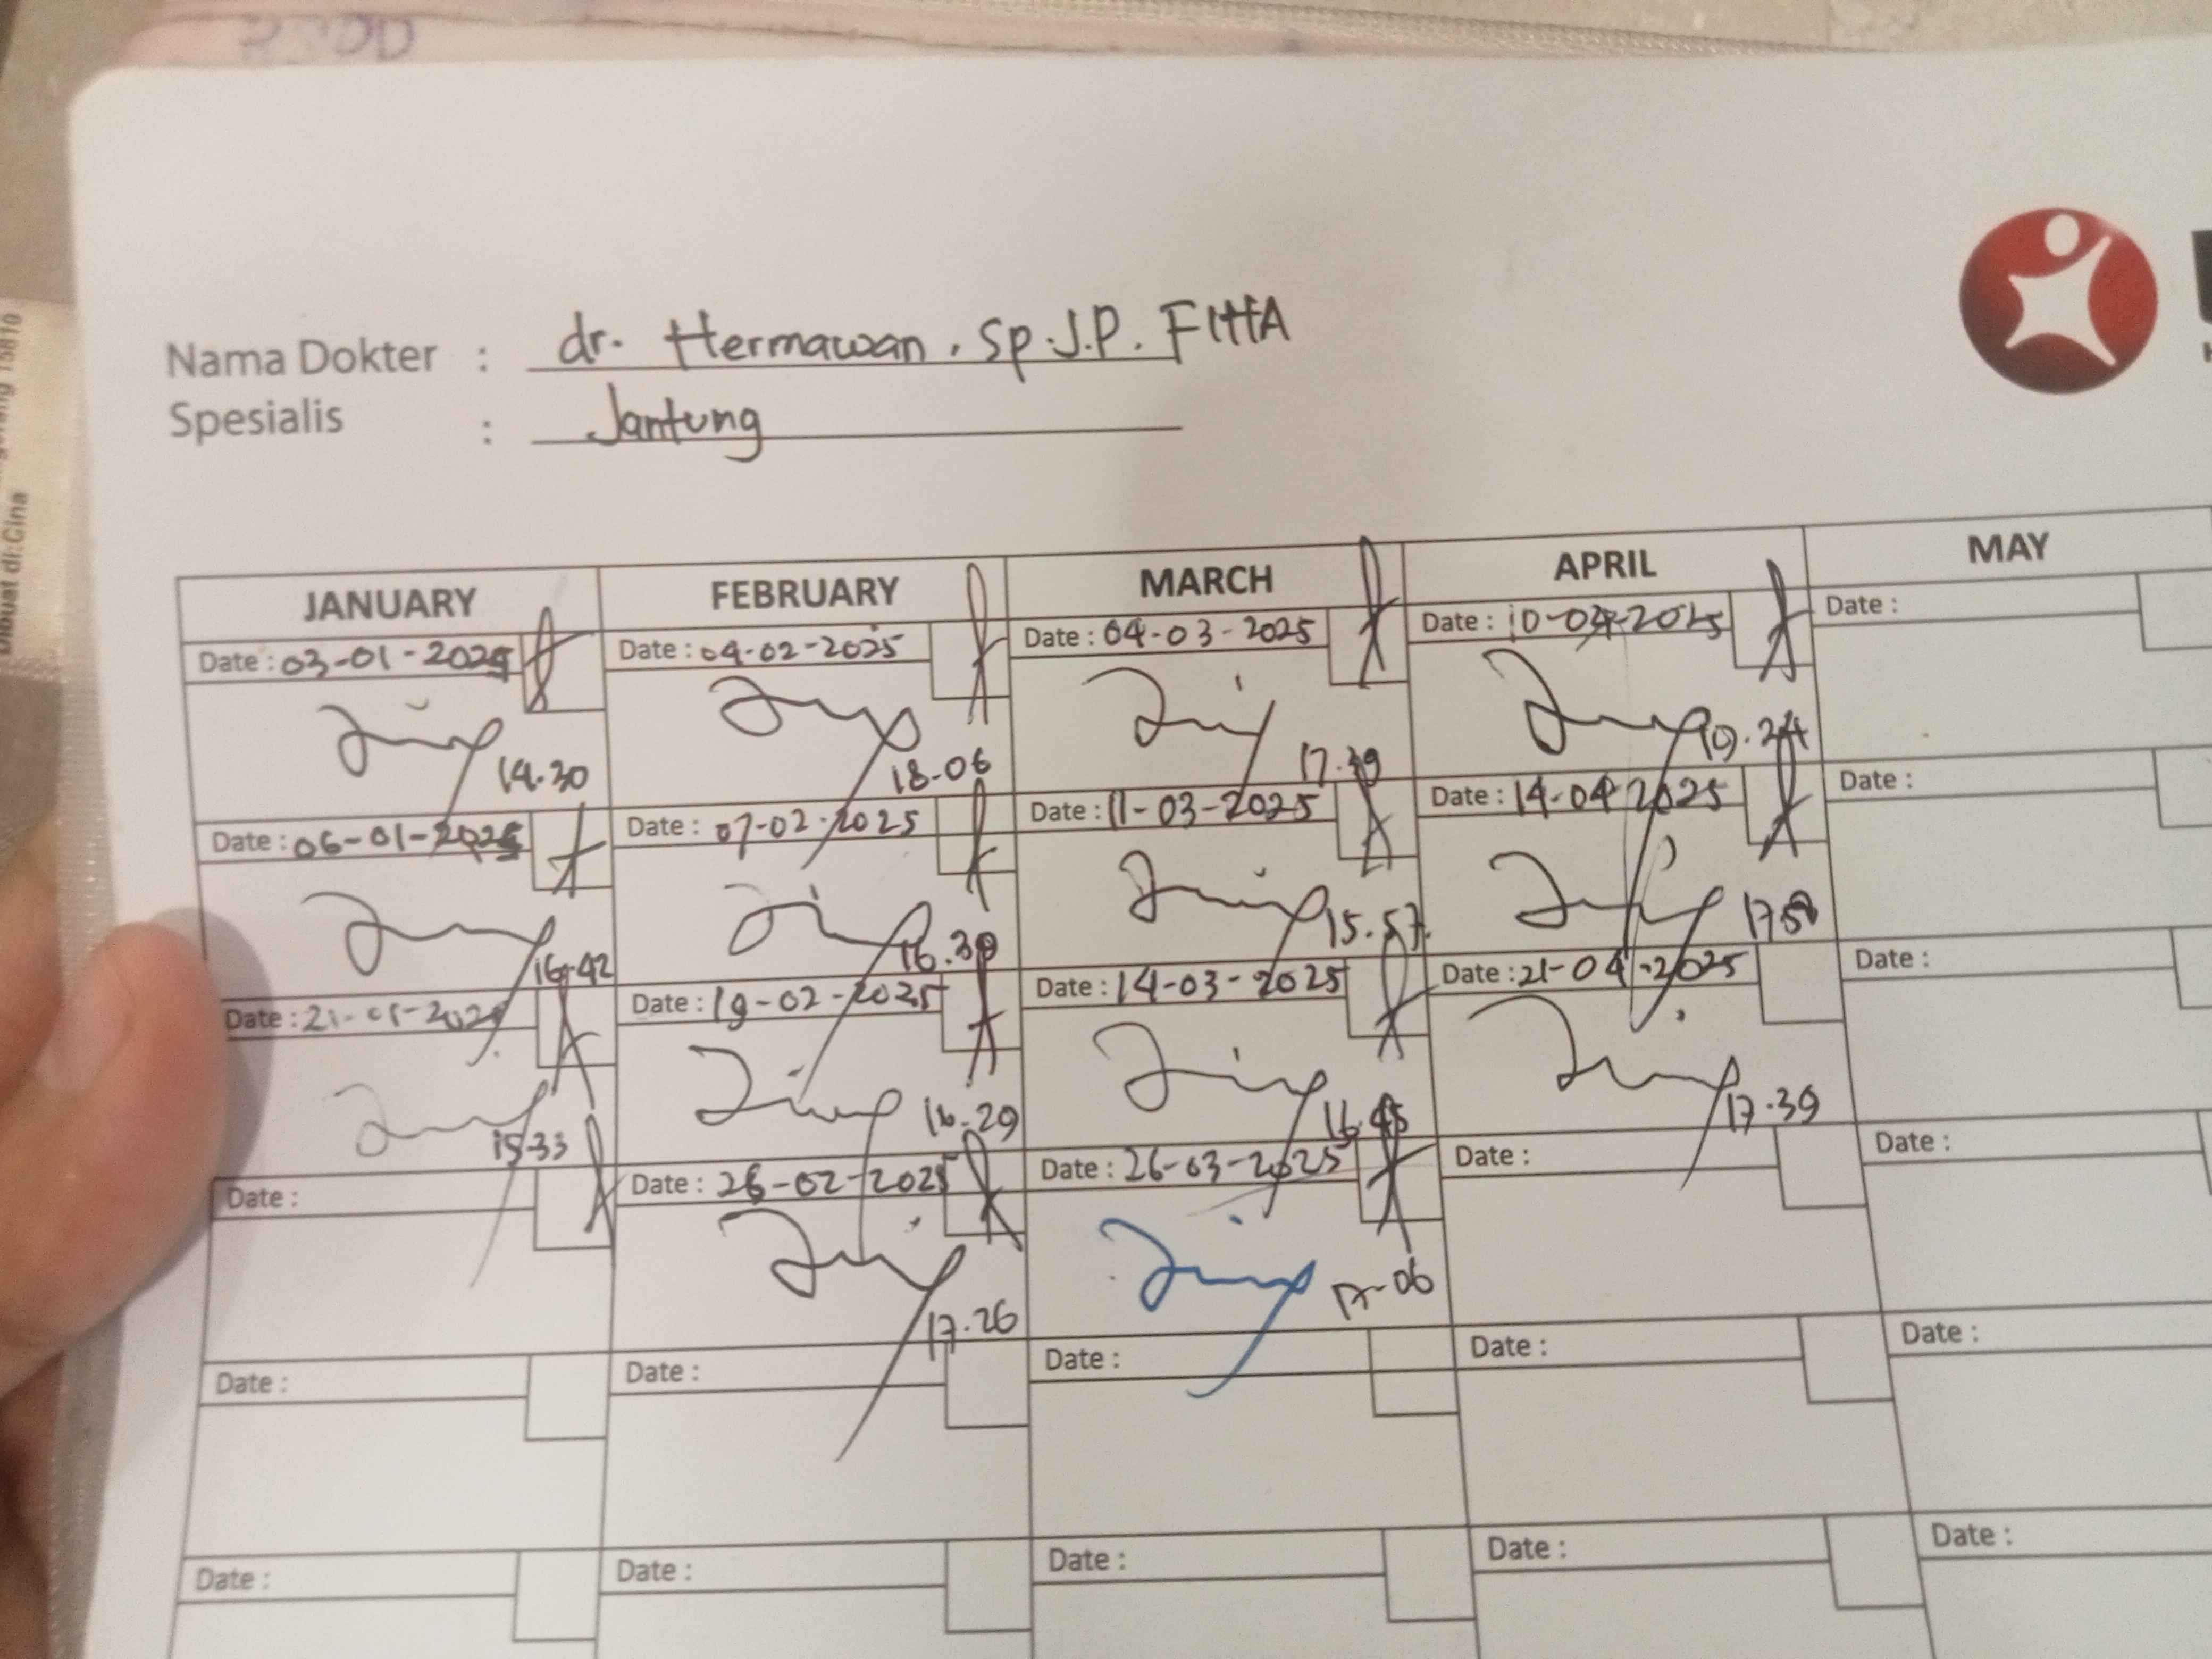 Nama Dokter : dr. Hermawan, Sp.J.P. FIHA
Spesialis : Jantung
JANUARY FEBRUARY MARCH APRIL MAY
Date : 03-01-2025 Date : 04-02-2025 Date : 04-03-2025 Date : 10-04-2025 Date :
14.30 18.06 17.39 19.24
Date : 06-01-2025 Date : 07-02-2025 Date : 11-03-2025 Date : 14-04-2025 Date :
16.42 16.30 15.57 17.58
Date : 21-01-2025 Date : 19-02-2025 Date : 14-03-2025 Date : 21-04-2025 Date :
15.33 16.29 16.45 17.39
Date : Date : 26-02-2025 Date : 26-03-2025 Date : Date :
17.26 17-06
Date : Date : Date : Date : Date :
Date : Date : Date : Date : Date :
15810
Dibuat di:Cina